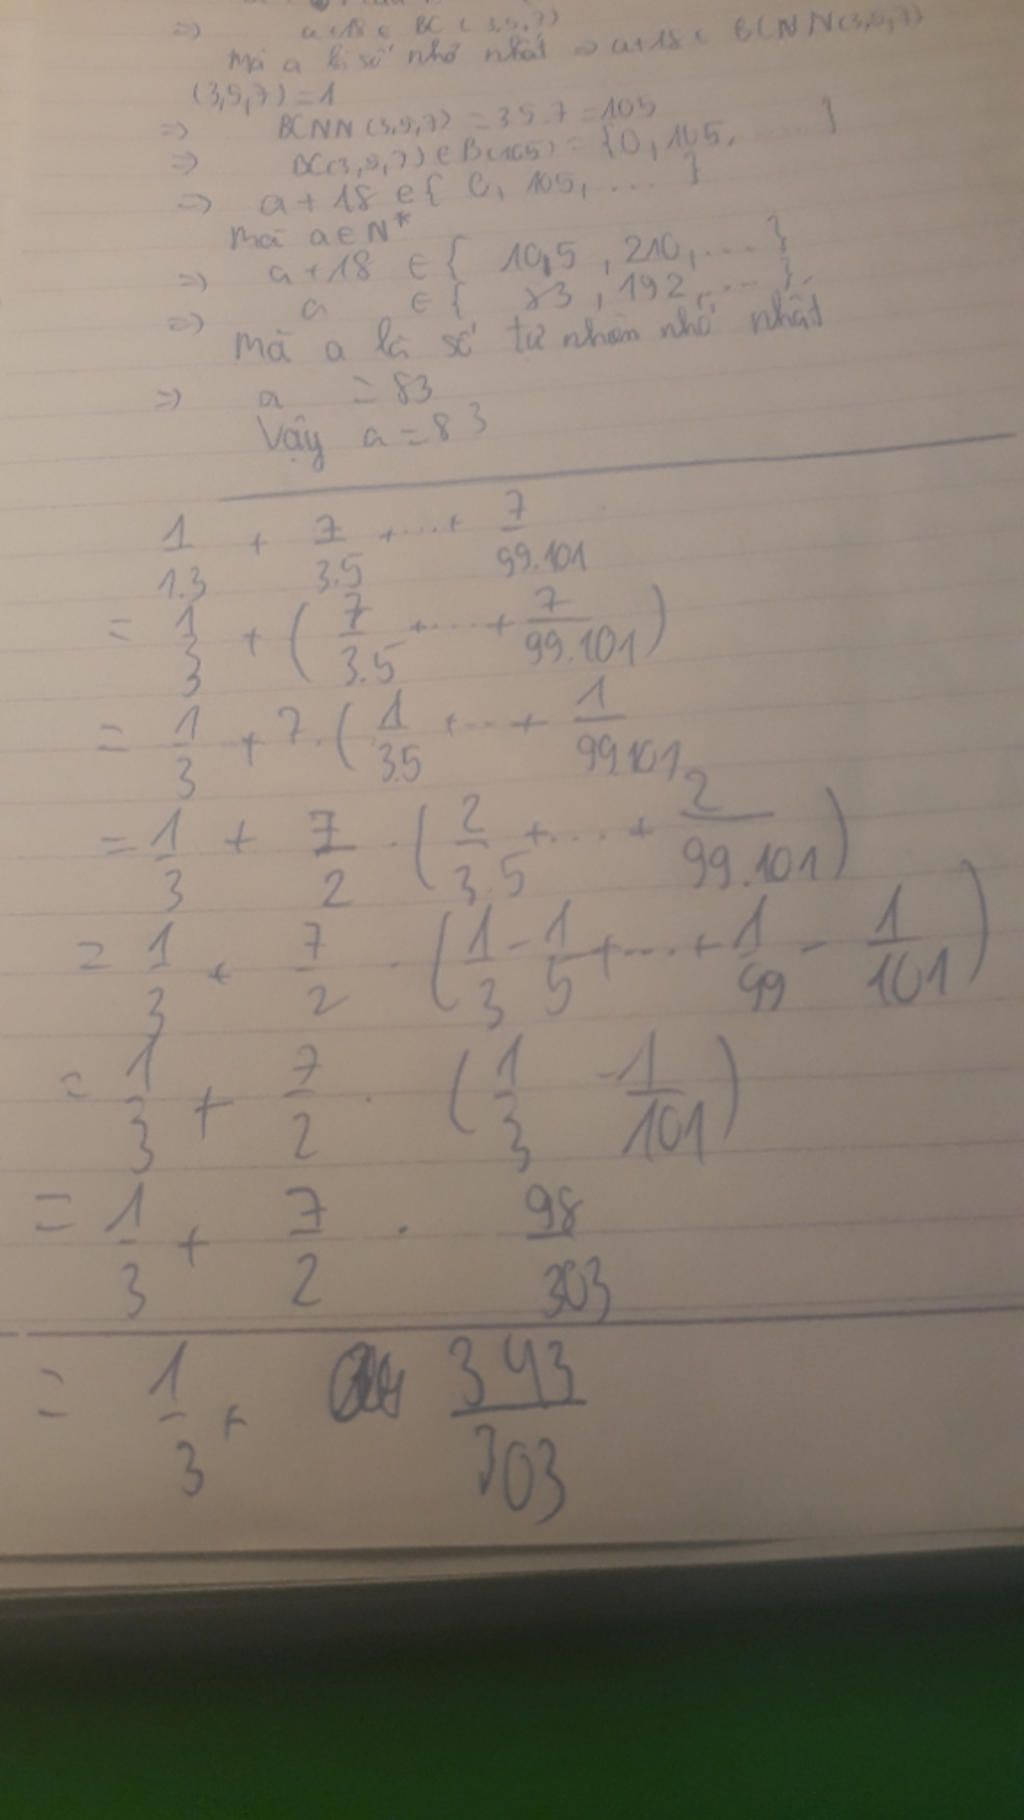 => a+18 ∈ BC (3,5,7)
Mà a là số nhỏ nhất => a+18 ∈ BCNN(3,5,7)
(3,5,7) = 1
=> BCNN (3,5,7) = 3.5.7 = 105
=> BC(3,5,7) ∈ B(105) = {0, 105, ....}
=> a + 18 ∈ { 0, 105, ... }
Mà a ∈ N*
=> a + 18 ∈ { 105, 210, ... }
=> a ∈ { 83, 192, ... }
Mà a là số tự nhiên nhỏ nhất
=> a = 83
Vậy a = 83
1/1.3 + 7/3.5 + ... + 7/99.101
= 1/3 + ( 7/3.5 + ... + 7/99.101 )
= 1/3 + 7.( 1/3.5 + ... + 1/99.101
= 1/3 + 7/2 . ( 2/3.5 + ... + 2/99.101 )
= 1/3 + 7/2 . ( 1/3 - 1/5 + ... + 1/99 - 1/101 )
= 1/3 + 7/2 . ( 1/3 - 1/101 )
= 1/3 + 7/2 . 98/303
= 1/3 + 343/303